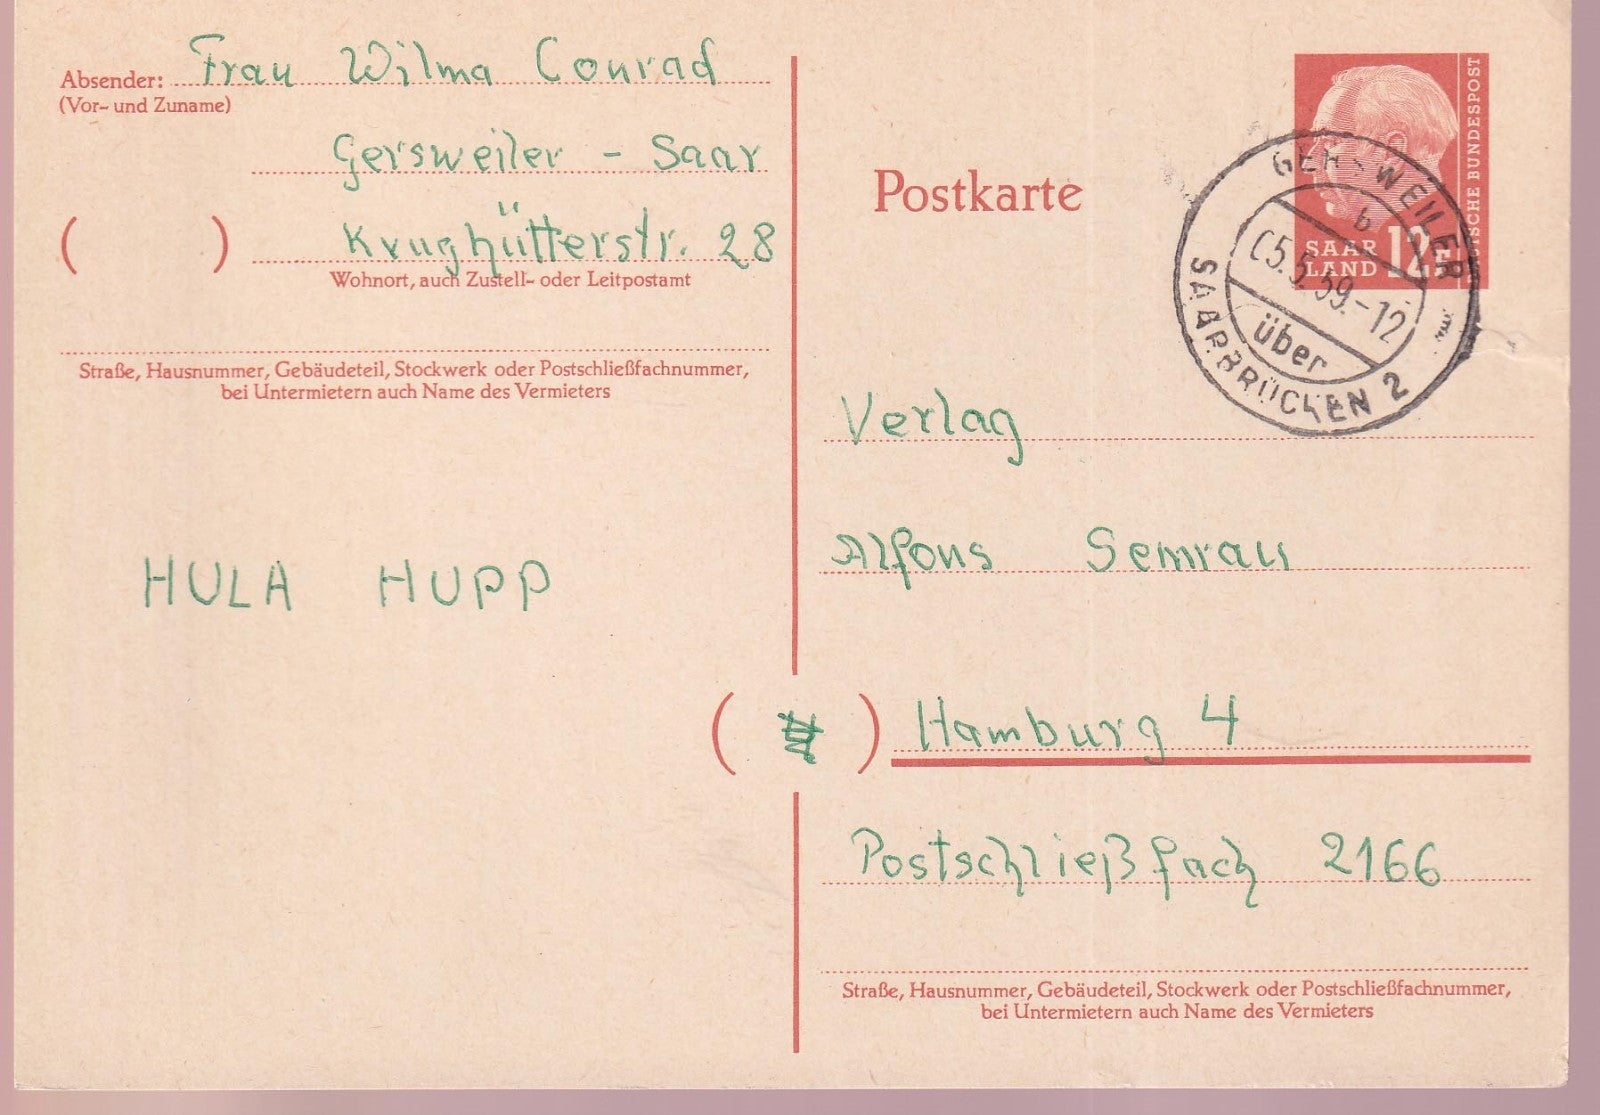 Absender: Frau Wilma Conrad
(Vor- und Zuname)
Gersweiler - Saar
( ) Krughütterstr. 28
Wohnort, auch Zustell- oder Leitpostamt
Straße, Hausnummer, Gebäudeteil, Stockwerk oder Postschließfachnummer,
bei Untermietern auch Name des Vermieters
HULA HUPP
Postkarte
DEUTSCHE BUNDESPOST
SAAR
LAND 12F
GERSWEILER
b
5.5.59.-12
über
SAARBRÜCKEN 2
Verlag
Alfons Semrau
( ) Hamburg 4
Postschließfach 2166
Straße, Hausnummer, Gebäudeteil, Stockwerk oder Postschließfachnummer,
bei Untermietern auch Name des Vermieters